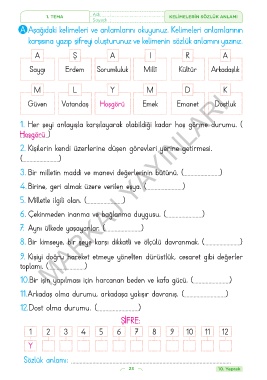 1. TEMA
KELİMELERİN SÖZLÜK ANLAMI
A Aşağıdaki kelimeleri ve anlamlarını okuyunuz. Kelimeleri anlamlarının
karşısına yazıp şifreyi oluşturunuz ve kelimenin sözlük anlamını yazınız.
A Ş A I R A
Saygı Erdem Sorumluluk Millî Kültür Arkadaşlık
M L Y D M K
Güven Vatandaş Hoşgörü Emek Emanet Dostluk
1. Her şeyi anlayışla karşılayarak olabildiği kadar hoş görme durumu. (
Hoşgörü )
2. Kişilerin kendi üzerlerine düşen görevleri yerine getirmesi.
(....................)
3. Bir milletin maddi ve manevi değerlerinin bütünü. (....................)
4. Birine, geri almak üzere verilen eşya. (....................)
5. Milletle ilgili olan. (....................)
6. Çekinmeden inanma ve bağlanma duygusu. (....................)
7. Aynı ülkede yaşayanlar. (....................)
8. Bir kimseye, bir şeye karşı dikkatli ve ölçülü davranmak. (....................)
9. Kişiyi doğru hareket etmeye yönelten dürüstlük, cesaret gibi değerler
toplamı. (....................)
10. Bir işin yapılması için harcanan beden ve kafa gücü. (....................)
11. Arkadaş olma durumu, arkadaşa yakışır davranış. (....................)
12. Dost olma durumu. (....................)
ŞİFRE:
1 2 3 4 5 6 7 8 9 10 11 12
Y
Sözlük anlamı: ....................
23
10. Yaprak
MARKAJ YAYINLARI